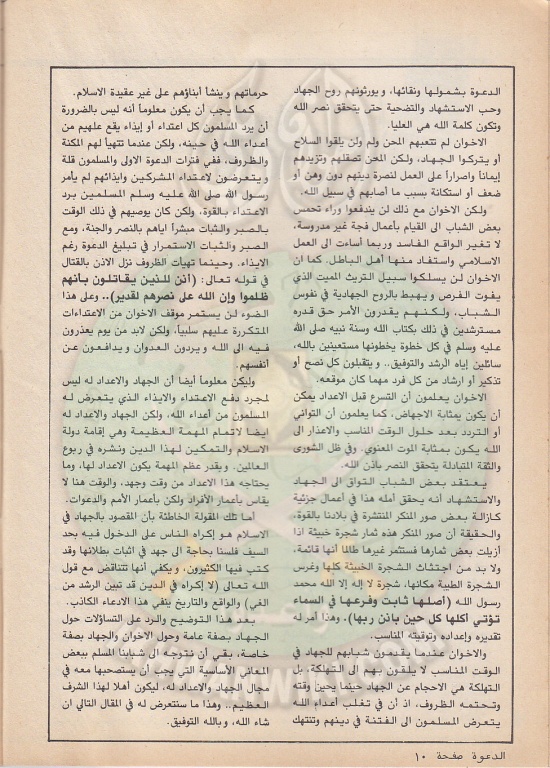 الدعوة بشمولها ونقائها، ويورثونهم روح الجهاد
وحب الاستشهاد والتضحية حتى يتحقق نصر الله
وتكون كلمة الله هي العليا.
الاخوان لم تتعبهم المحن ولم ولن يلقوا السلاح
أو يتركوا الجهاد، ولكن المحن تصقلهم وتزيدهم
إيماناً واصراراً على العمل لنصرة دينهم دون وهن أو
ضعف أو استكانة بسبب ما أصابهم في سبيل الله.
ولكن الاخوان مع ذلك لن يندفعوا وراء تحمس
بعض الشباب الى القيام بأعمال فجة غير مدروسة،
لا تغير الواقع الفاسد وربما أساءت الى العمل
الاسلامي واستفاد منها أهل الباطل. كما ان
الاخوان لن يسلكوا سبيل التريث المميت الذي
يفوت الفرص ويهبط بالروح الجهادية في نفوس
الشباب، ولكنهم يقدرون الأمر حق قدره
مسترشدين في ذلك بكتاب الله وسنة نبيه صلى الله
عليه وسلم في كل خطوة يخطونها مستعينين بالله،
سائلين إياه الرشد والتوفيق.. ويتقبلون كل نصح أو
تذكير أو ارشاد من كل فرد مهما كان موقعه.
الاخوان يعلمون أن التسرع قبل الاعداد يمكن
أن يكون بمثابة الاجهاض، كما يعلمون أن التواني
أو التردد بعد حلول الوقت المناسب والاعذار الى
الله يكون بمثابة الموت المعنوي. وفي ظل الشورى
والثقة المتبادلة يتحقق النصر باذن الله.
يعتقد بعض الشباب التواق الى الجهاد
والاستشهاد أنه يحقق أمله هذا في أعمال جزئية
كازالة بعض صور المنكر المنتشرة في بلادنا بالقوة،
والحقيقة أن صور المنكر هذه ثمار شجرة خبيثة اذا
أزيلت بعض ثمارها فستثمر غيرها طالما أنها قائمة،
ولا بد من اجتثاث الشجرة الخبيثة كلها وغرس
الشجرة الطيبة مكانها، شجرة لا إله إلا الله محمد
رسول الله (أصلها ثابت وفرعها في السماء
تؤتي أكلها كل حين باذن ربها). وهذا أمر له
تقديره وإعداده وتوقيته المناسب.
والاخوان عندما يقدمون شبابهم للجهاد في
الوقت المناسب لا يلقون بهم الى التهلكة، بل
التهلكة هي الاحجام عن الجهاد حينما يحين وقته
وتحتمه الظروف، اذ أن في تغلب أعداء الله
يتعرض المسلمون الى الفتنة في دينهم وتنتهك
حرماتهم وينشأ أبناؤهم على غير عقيدة الاسلام.
كما يجب أن يكون معلوماً أنه ليس بالضرورة
أن يرد المسلمون كل اعتداء أو إيذاء يقع عليهم من
أعداء الله في حينه، ولكن عندما تتهيأ لهم المكنة
والظروف، ففي فترات الدعوة الاولى والمسلمون قلة
ويتعرضون لاعتداء المشركين وايذائهم لم يأمر
رسول الله صلى الله عليه وسلم المسلمين برد
الاعتداء بالقوة، ولكن كان يوصيهم في ذلك الوقت
بالصبر والثبات مبشراً اياهم بالنصر والجنة، ومع
الصبر والثبات الاستمرار في تبليغ الدعوة رغم
الايذاء. وحينما تهيأت الظروف نزل الاذن بالقتال
في قوله تعالى: (أذن للذين يقاتلون بأنهم
ظلموا وإن الله على نصرهم لقدير).. وعلى هذا
الضوء لن يستمر موقف الاخوان من الاعتداءات
المتكررة عليهم سلبياً، ولكن لابد من يوم يعذرون
فيه الى الله ويردون العدوان ويدافعون عن
أنفسهم.
وليكن معلوماً أيضا أن الجهاد والاعداد له ليس
لمجرد دفع الاعتداء والايذاء الذي يتعرض له
المسلمون من أعداء الله، ولكن الجهاد والاعداد له
ايضا لاتمام المهمة العظيمة وهي إقامة دولة
الاسلام والتمكين لهذا الدين ونشره في ربوع
العالمين. وبقدر عظم المهمة يكون الاعداد لها، وما
يحتاجه هذا الاعداد من وقت وجهد، والوقت هنا لا
يقاس بأعمار الأفراد ولكن بأعمار الأمم والدعوات.
أما تلك المقولة الخاطئة بأن المقصود بالجهاد في
الاسلام هو إكراه الناس على الدخول فيه بحد
السيف فلسنا بحاجة الى جهد في اثبات بطلانها وقد
كتب فيها الكثيرون، ويكفي أنها تتناقض مع قول
الله تعالى (لا إكراه في الدين قد تبين الرشد من
الغي) والواقع والتاريخ ينفي هذا الادعاء الكاذب.
بعد هذا التوضيح والرد على التساؤلات حول
الجهاد بصفة عامة وحول الاخوان والجهاد بصفة
خاصة، بقي أن نتوجه الى شبابنا المسلم ببعض
المعاني الأساسية التي يجب أن يستصحبها معه في
مجال الجهاد والاعداد له، ليكون أهلا لهذا الشرف
العظيم.. وهذا ما سنتعرض له في المقال التالي ان
شاء الله، وبالله التوفيق.
الدعوة صفحة ١٠